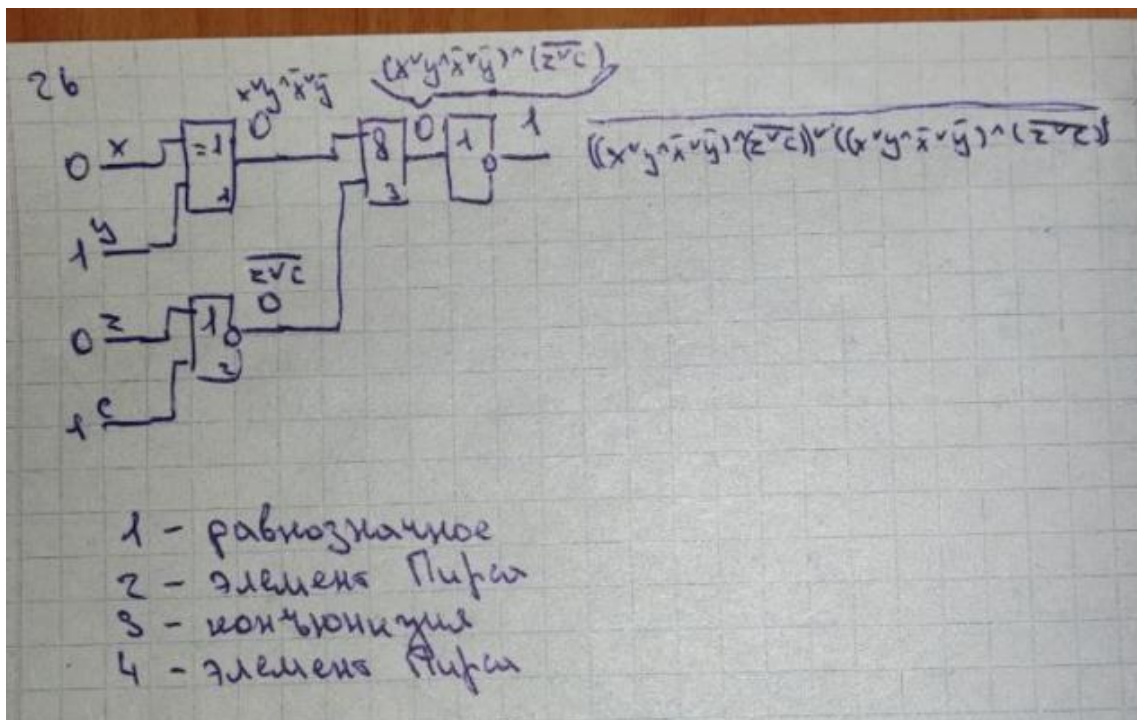 26
(x ∨ y ∧ x̄ ∨ ȳ) ∧ (z̅ ̅∨̅ ̅c̅)
x ∨ y ∧ x̄ ∨ ȳ
0 x =1 0 & 0 1 1
1
3
((x ∨ y ∧ x̄ ∨ ȳ) ∧ (z̅ ̅∨̅ ̅c̅)) ∨ ((x ∨ y ∧ x̄ ∨ ȳ) ∧ (z̅ ̅∨̅ ̅c̅))
1 y
z̅ ̅∨̅ ̅c̅
0
0 z 1
2
1 c
1 - равнозначное
2 - элемент Пирса
3 - конъюнкция
4 - элемент Пирса